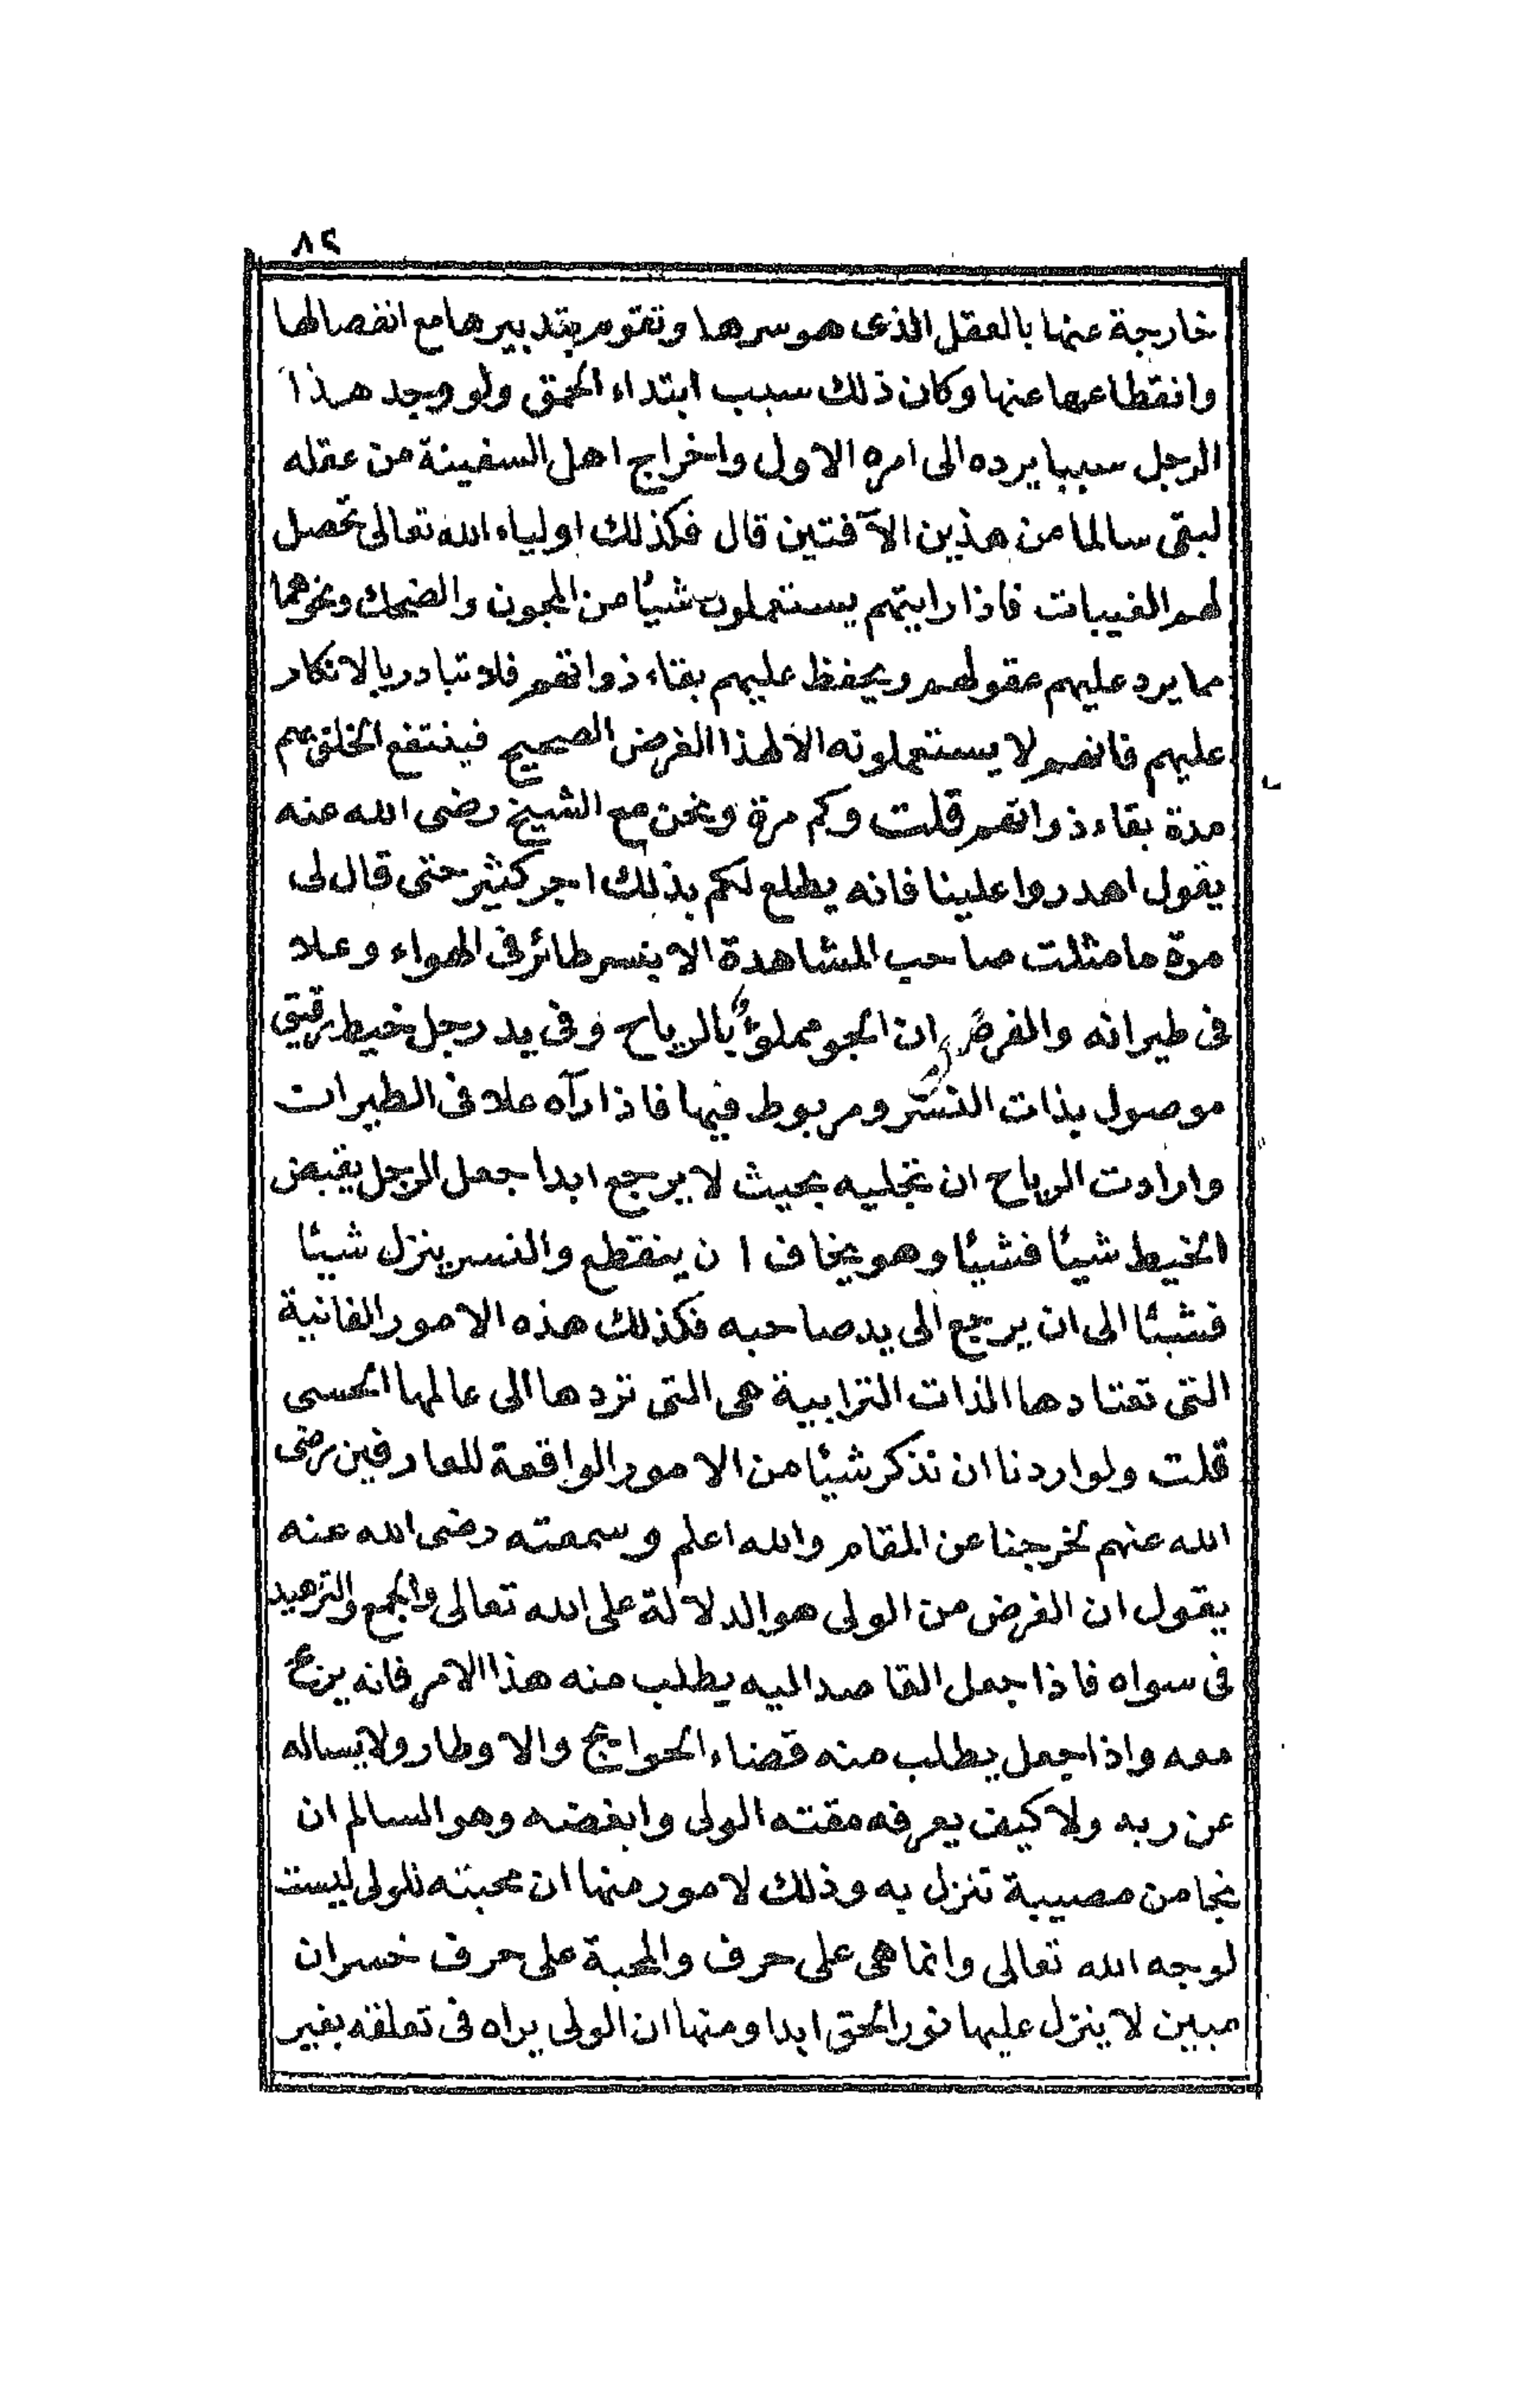 ٨٢
خارجة عنها بالعقل الذى هو سرها وتقوم بتدبيرها مع انفصالها
وانقطاعها عنها وكان ذلك سبب ابتداء الحمق ولو وجد هذا
الرجل سببا يرده الى امره الاول واخراج اهل السفينة من عقله
لبقى سالما من هذين الآفتين قال فكذلك اولياء الله تعالى تحصل
لهم الغيبات فاذا رايتهم يستعملون شيئا من المجون والضحك ونحوهما
مما يرد عليهم عقولهم ويحفظ عليهم بقاء ذواتهم فلا تبادر بالانكار
عليهم فانهم لا يستعملونه الا لهذا الغرض الصحيح فينتفع الخلق بهم
مدة بقاء ذواتهم قلت وكم مرة ونحن مع الشيخ رضى الله عنه
يقول اهدروا علينا فانه يطلع لكم بذلك اجر كثير حتى قال لى
مرة ما مثلت صاحب المشاهدة الا بنسر طائر فى الهواء وعلا
فى طيرانه والفرض ان الجو مملوء بالرياح وفى يد رجل خيط رقيق
موصول بذات النسر ومربوط فيها فاذا رآه علا فى الطيران
وارادت الرياح ان تخليه بحيث لا يرجع ابدا جعل الرجل يقبض
الخيط شيئا فشيئا وهو يخاف ان ينقطع والنسر ينزل شيئا
فشيئا الى ان يرجع الى يد صاحبه فكذلك هذه الامور الفانية
التى تعتادها الذات الترابية هى التى تردها الى عالمها الحسى
قلت ولو اردنا ان نذكر شيئا من الامور الواقعة للعارفين رضى
الله عنهم لخرجنا عن المقام والله اعلم وسمعته رضى الله عنه
يقول ان الغرض من الولى هو الدلالة على الله تعالى والجمع والتزهيد
فى سواه فاذا جعل القاصد اليه يطلب منه هذا الامر فانه يربح
معه واذا جعل يطلب منه قضاء الحوايج والاوطار ولا يساله
عن ربه ولا كيف يعرفه مقته الولى وابغضه وهو السالم ان
نجا من مصيبة تنزل به وذلك لامور منها ان محبته للولى ليست
لوجه الله تعالى وانما هى على حرف والمحبة على حرف خسران
مبين لا ينزل عليها نور الحق ابدا ومنها ان الولى يراه فى تعلقه بغير